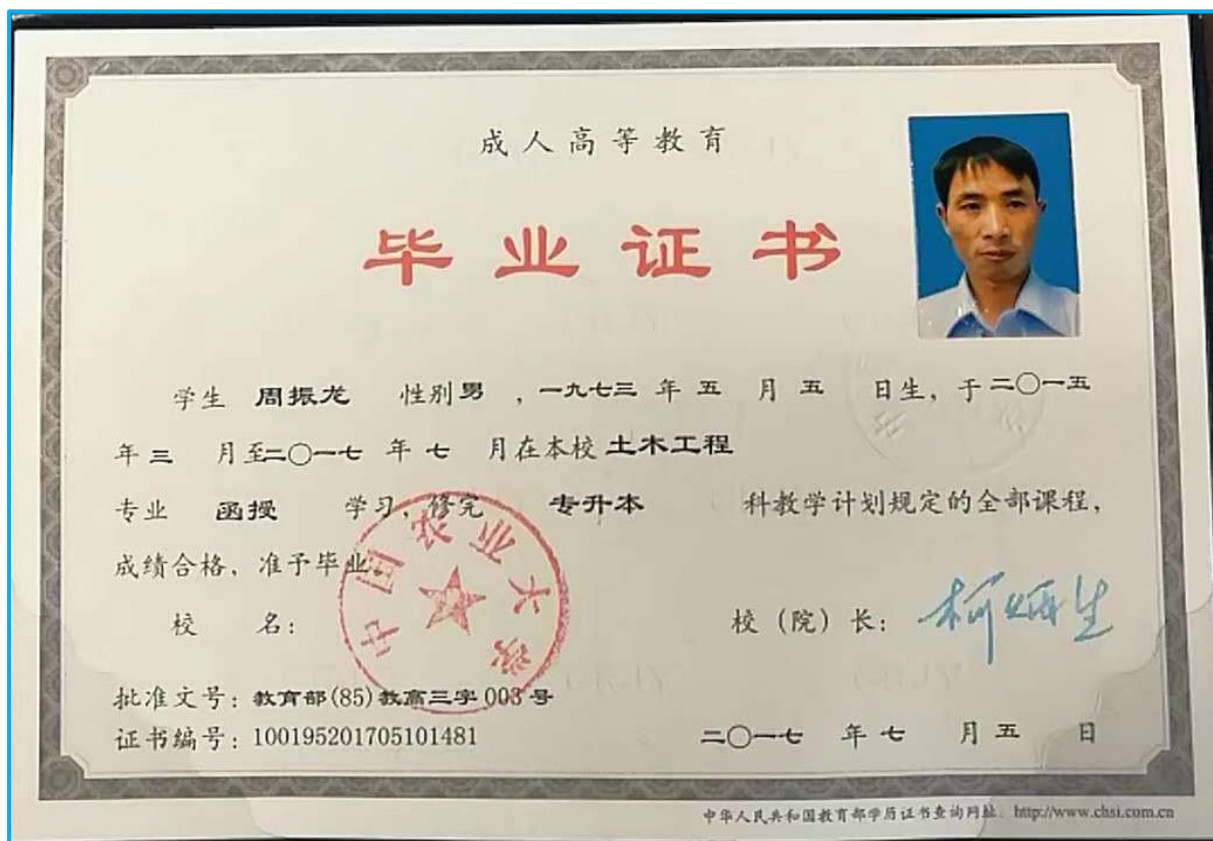 成人高等教育
毕业证书
学生 周振龙 性别 男 , 一九七三 年 五 月 五 日生, 于 二〇一五
年 三 月至 二〇一七 年 七 月在本校 土木工程
专业 函授 学习, 修完 专升本 科教学计划规定的全部课程,
成绩合格, 准予毕业。
中国农业大学
校 名: 校（院）长: 柯炳生
批准文号: 教育部(85)教高三字 003 号
证书编号: 100195201705101481 二〇一七 年 七 月 五 日
中华人民共和国教育部学历证书查询网址: http://www.chsi.com.cn